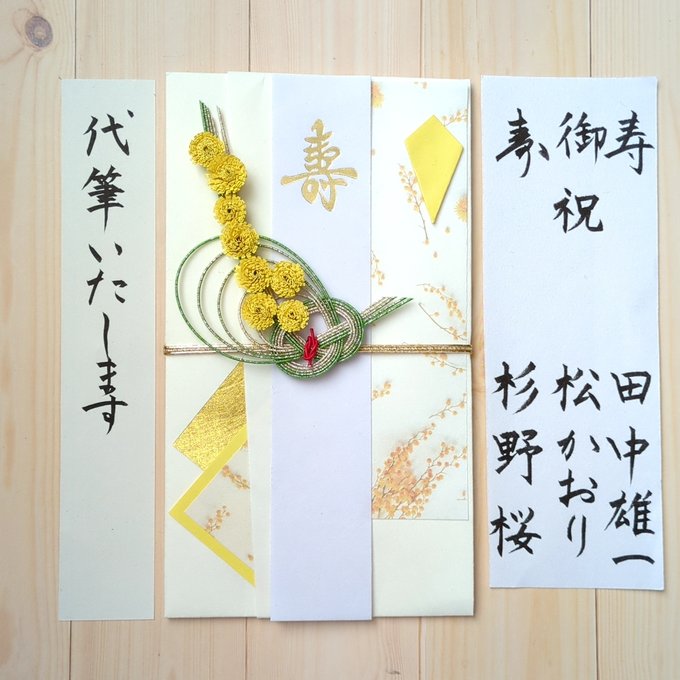 寿 田中雄一
御祝 松かおり
寿 杉野桜
壽
代筆いたします